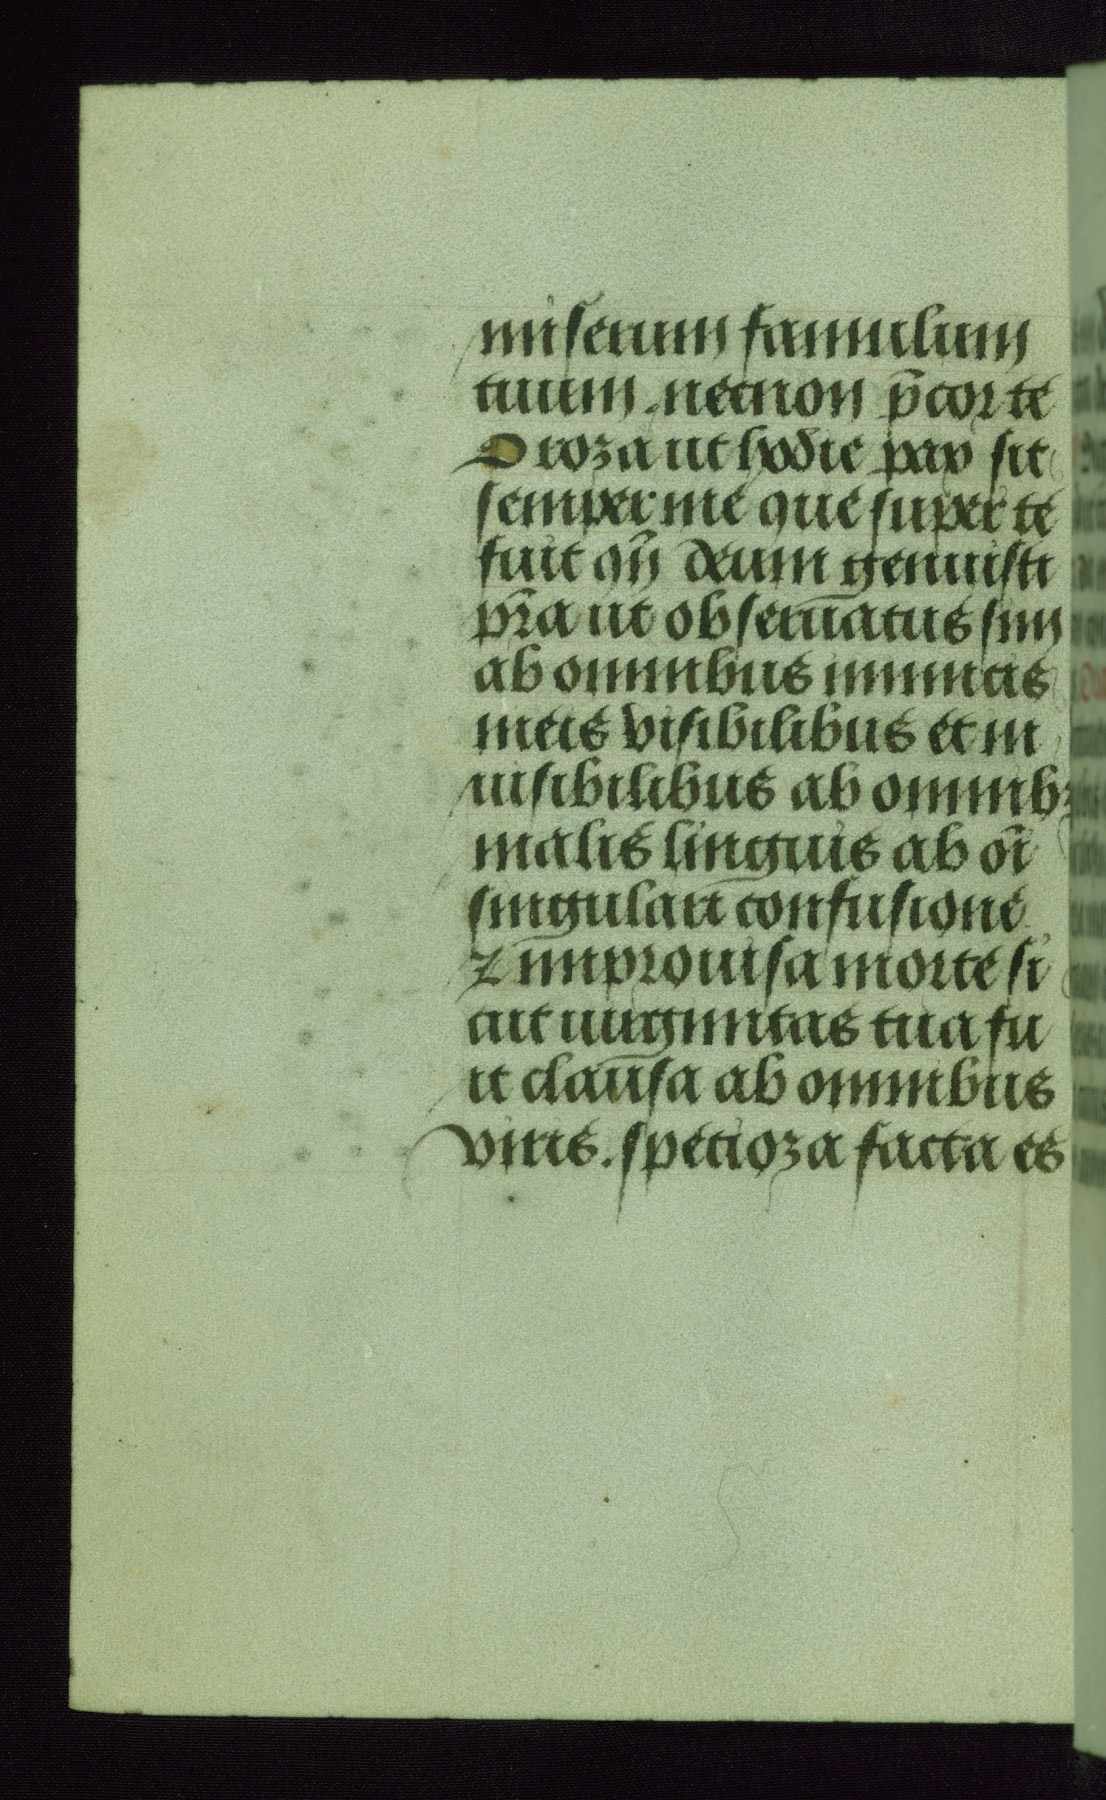 miserum famulum
tuum. necnon p̄cor te
O roza ut hodie pax sit
semper me que super te
fuit qn̄ deum genuisti
p̄ra ut obseruatus sim
ab omnibus inimicis
meis visibilibus et in
uisibilibus ab omnibꝫ
malis linguis ab oī
singulari confusione
⁊ improuisa morte si
cut uirginitas tua fu
it clausa ab omnibus
viris. specioza facta es